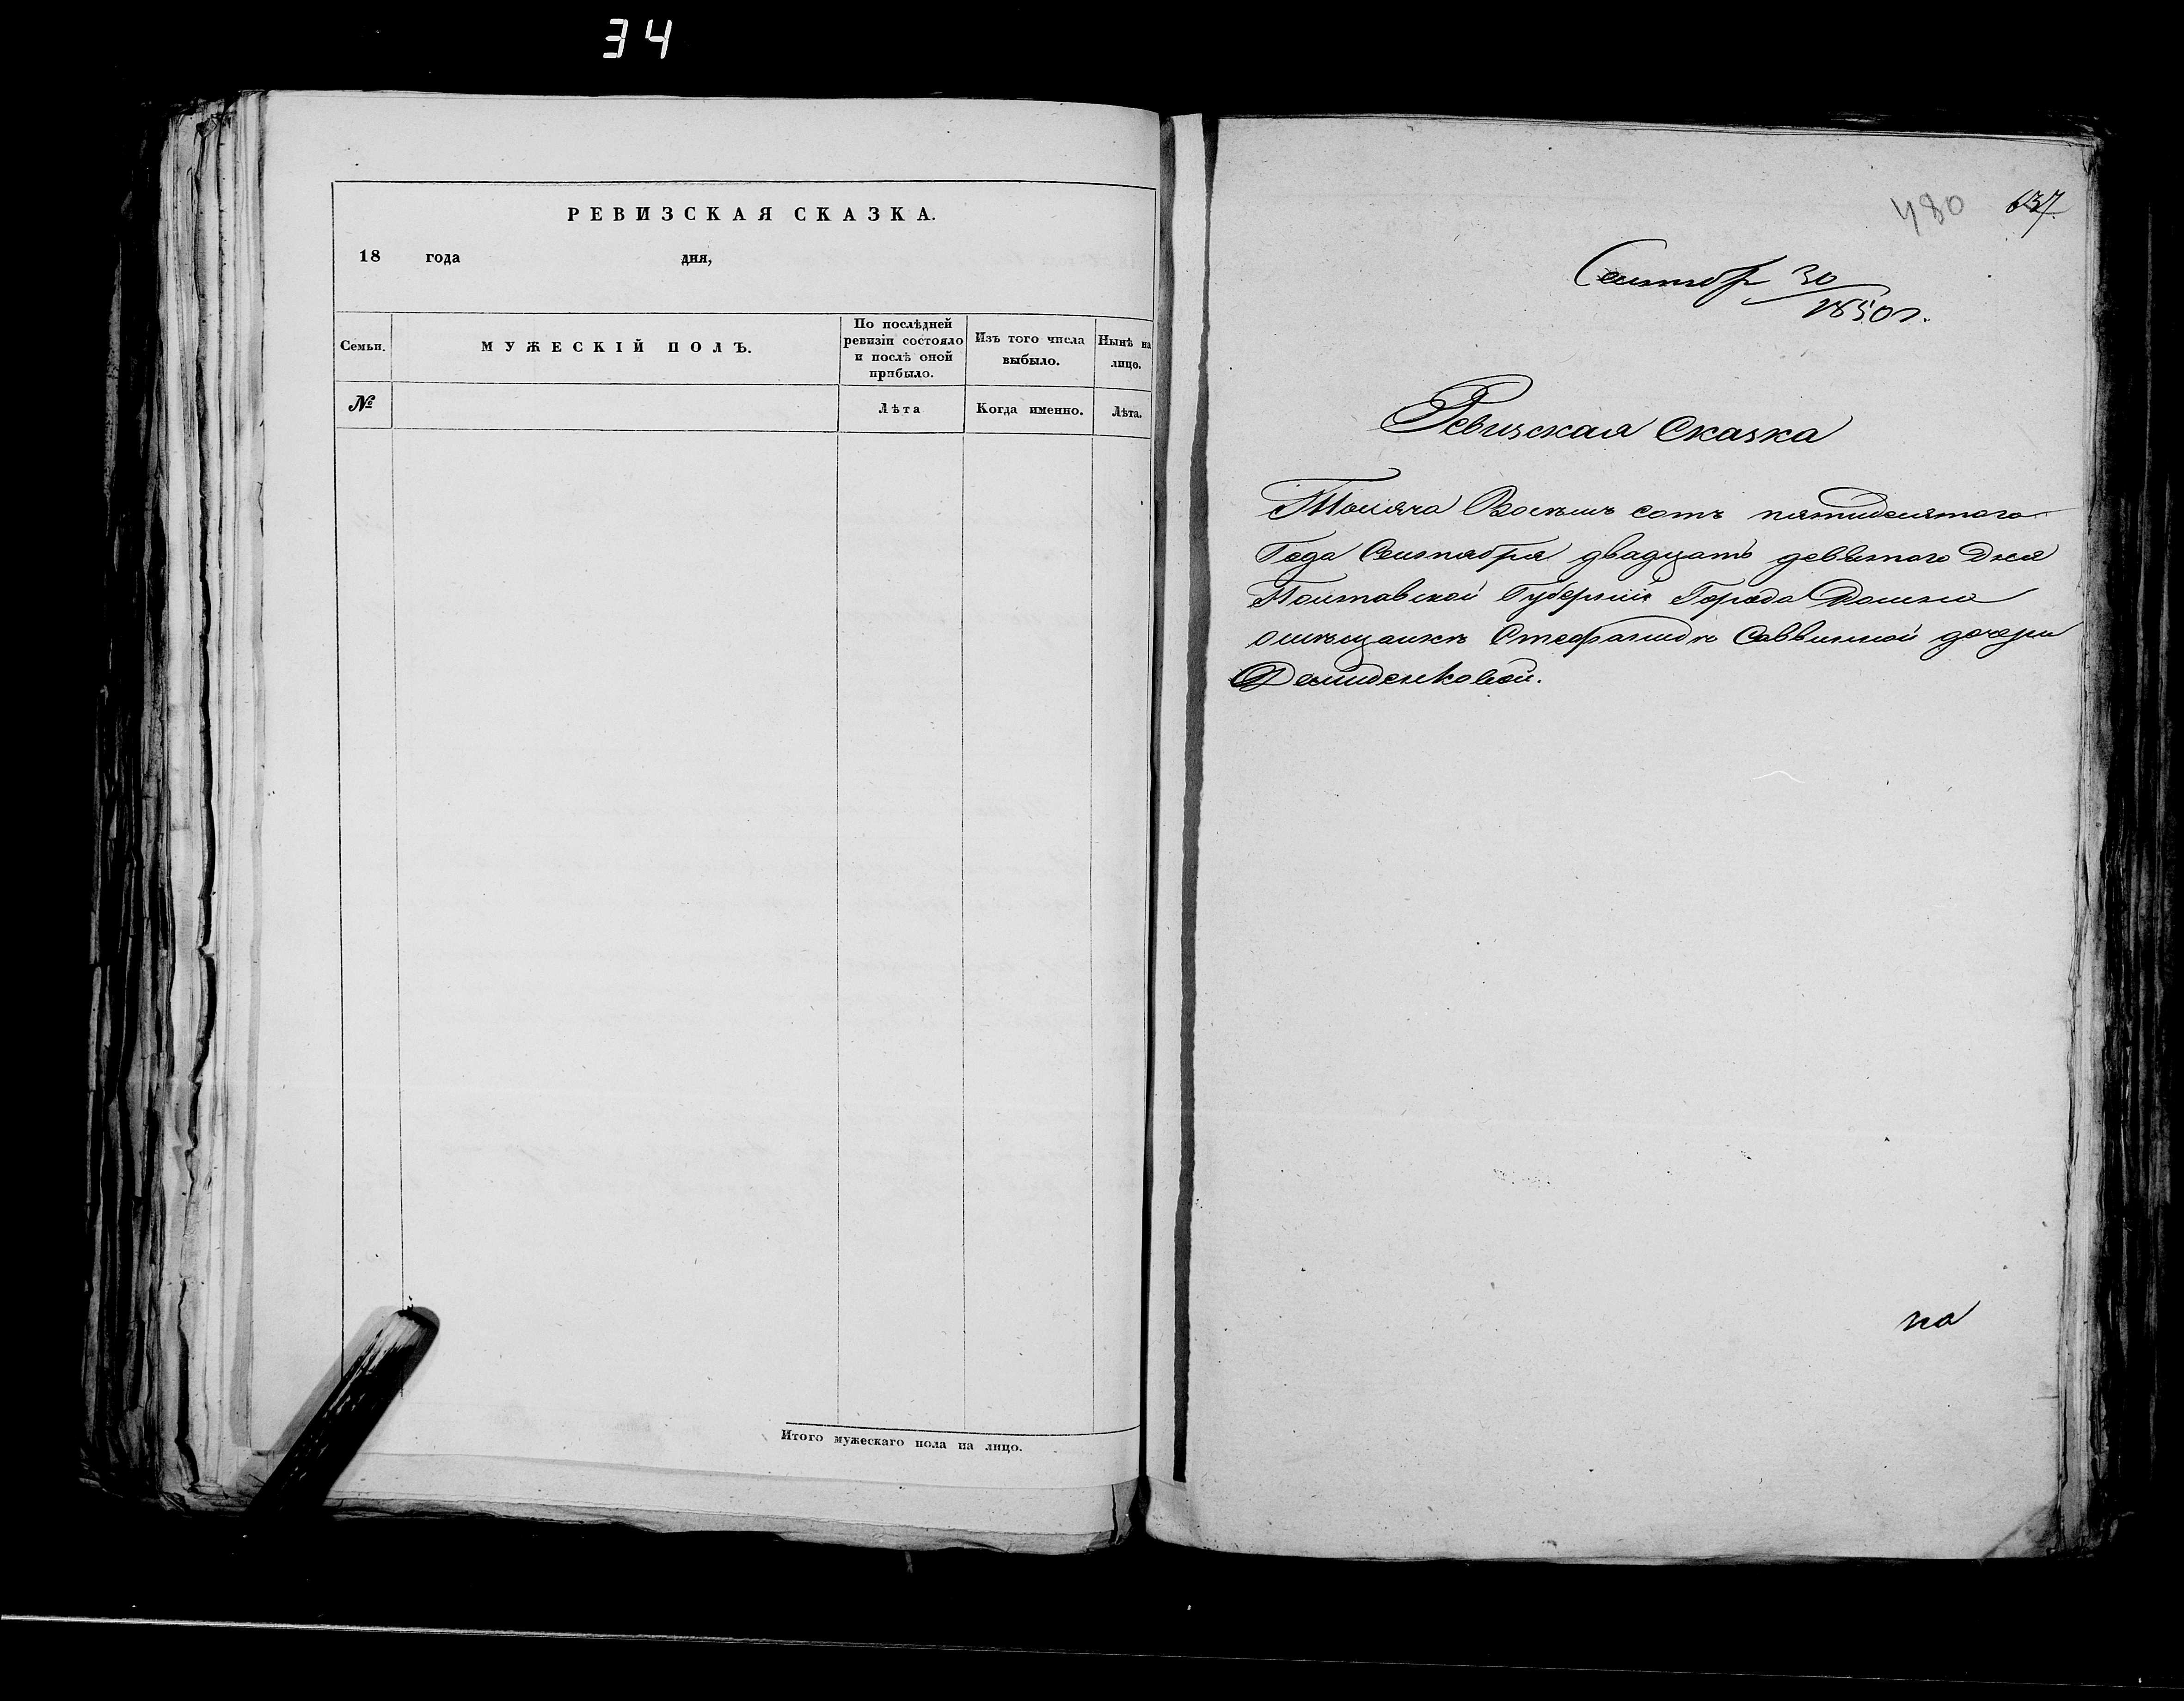 34
РЕВИЗСКАЯ СКАЗКА.
18 года дня,
Семьи.
МУЖЕСКІЙ ПОЛЪ.
По послѣдней
ревизіи состояло
и послѣ оной
прибыло.
Изъ того числа
выбыло.
Нынѣ на
лицо.
№
Лѣта
Когда именно.
Лѣта.
Итого мужескаго пола на лицо.
480
637
Сентябр 30
1850 г.
Ревизская Сказка
Тысяча Восемь сотъ пятидесятого
Года Сентября двадцать девятого Дня
Полтавской Губерніи Города
Стефаниды Саввиной дочери
Демиденковой.
на